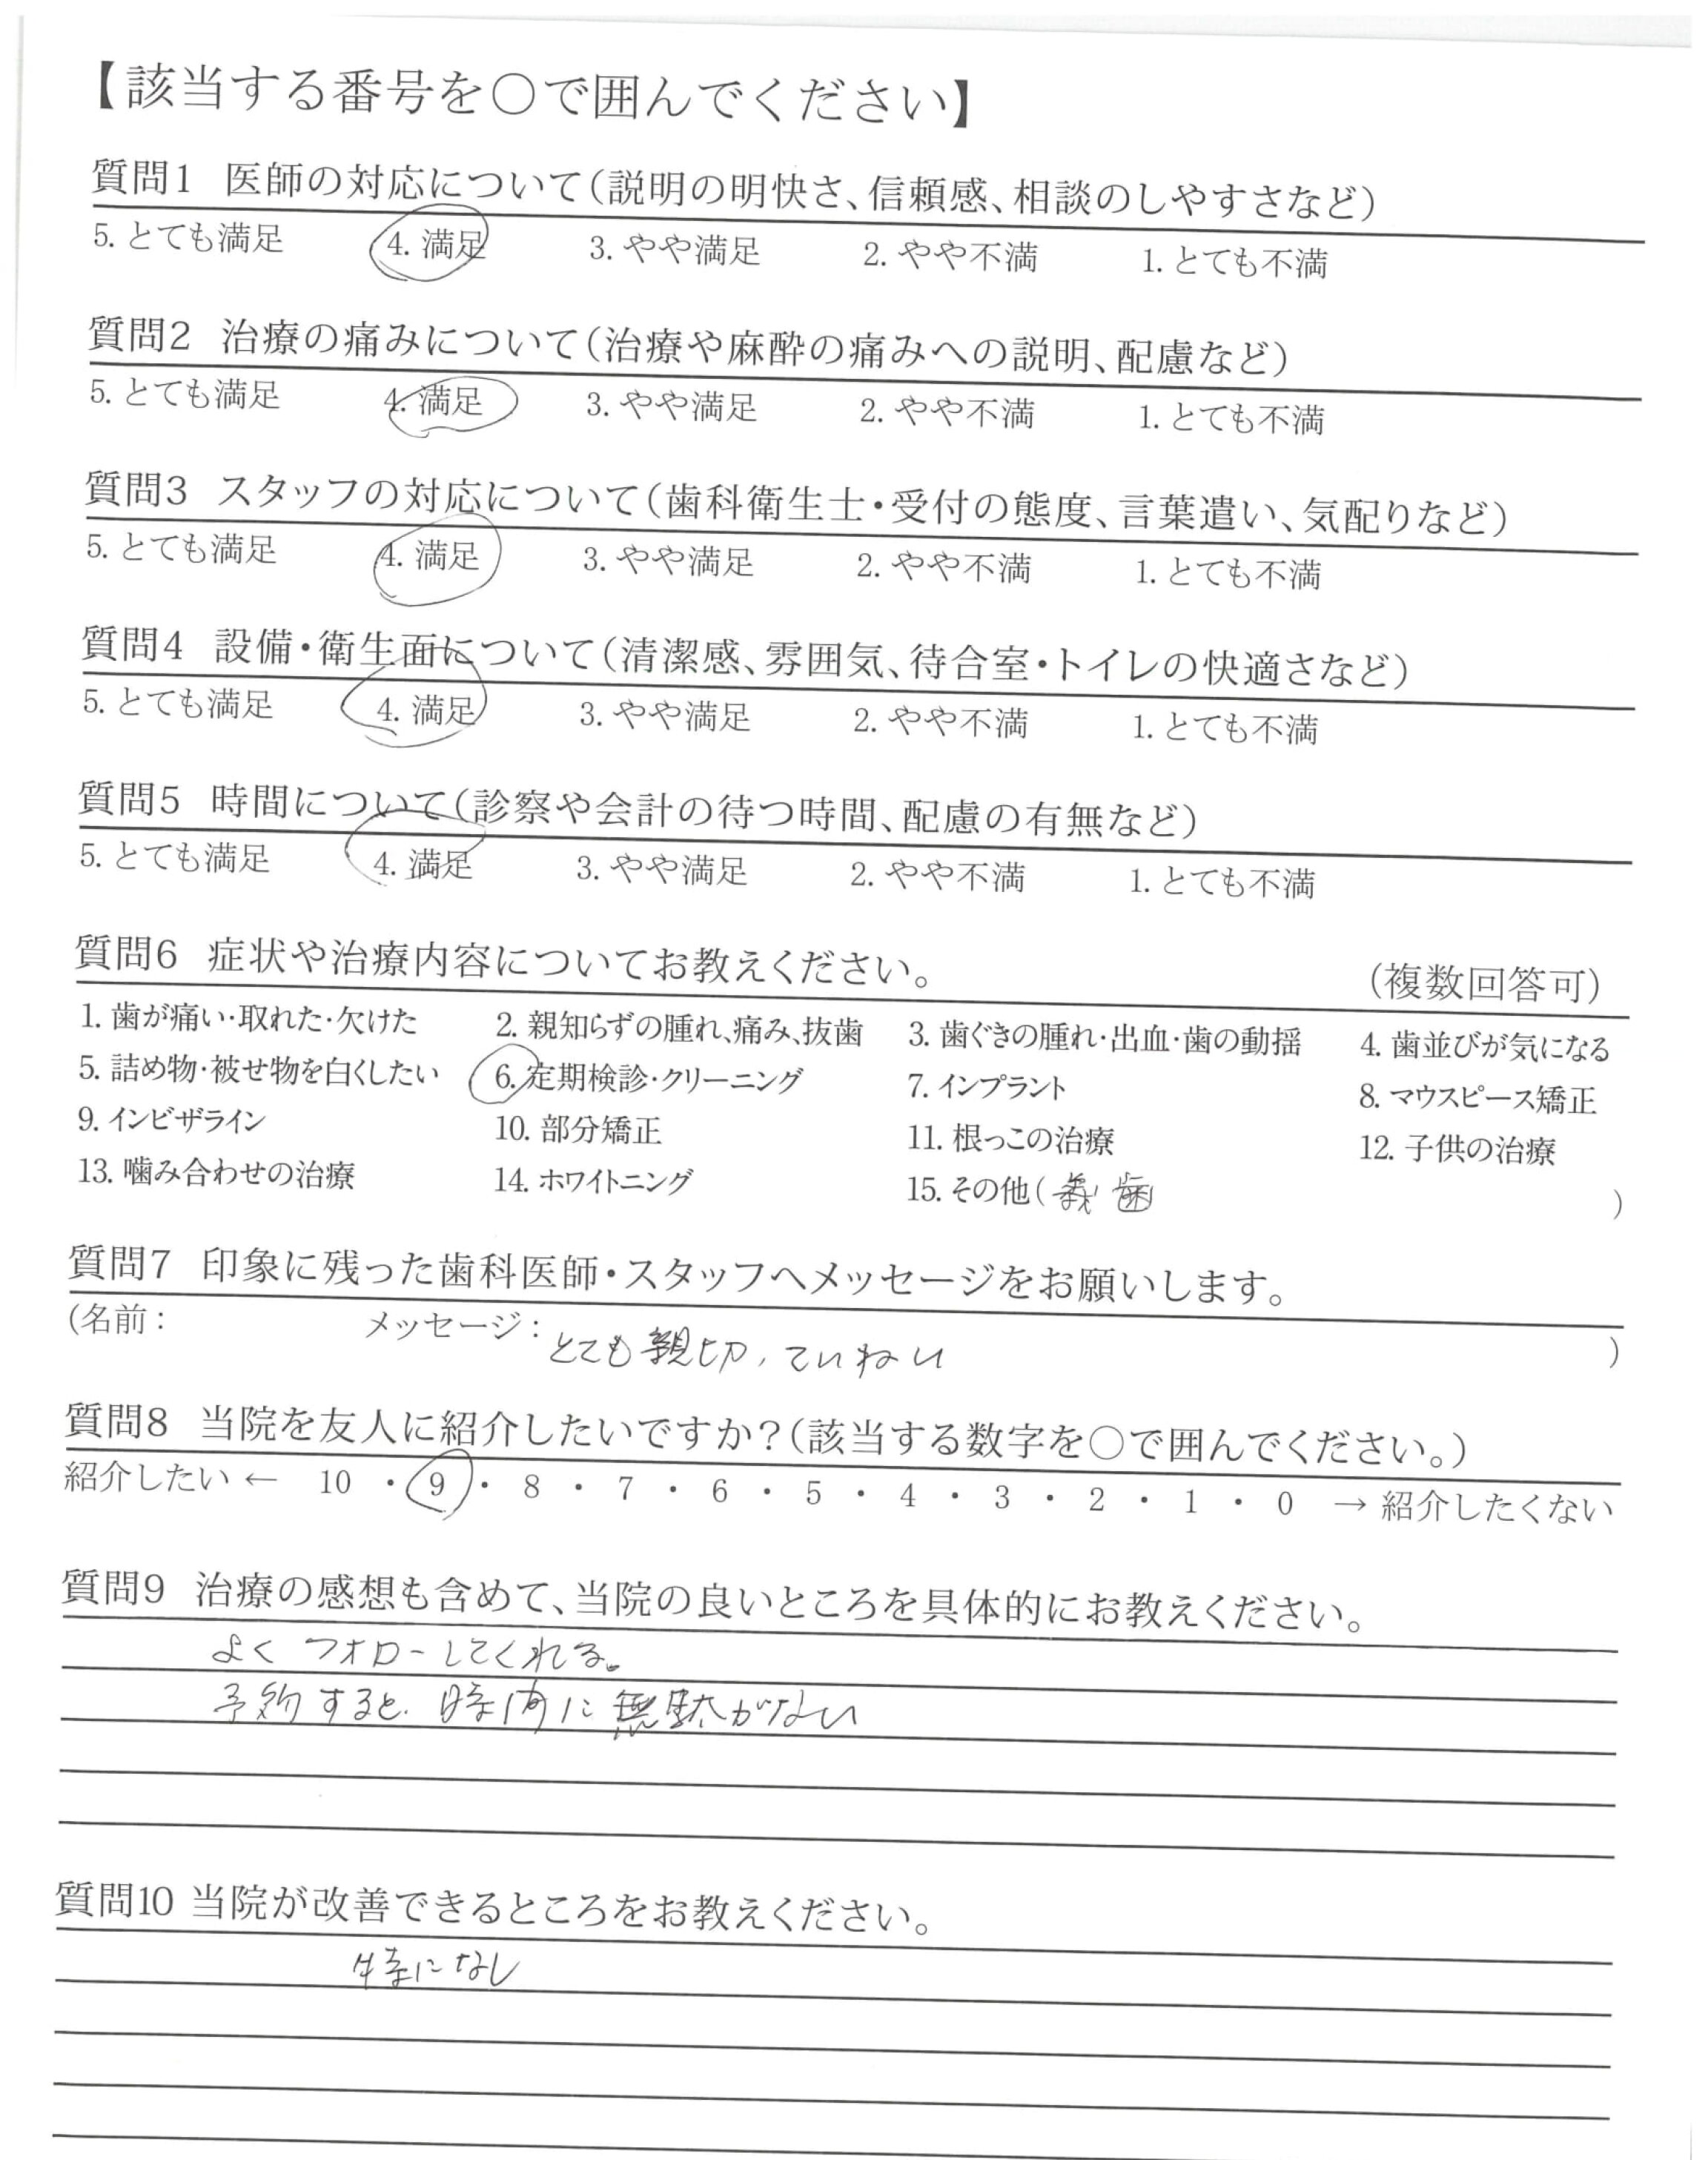 【該当する番号を○で囲んでください】
質問1 医師の対応について(説明の明快さ、信頼感、相談のしやすさなど)
5. とても満足 4. 満足 3. やや満足 2. やや不満 1. とても不満
質問2 治療の痛みについて(治療や麻酔の痛みへの説明、配慮など)
5. とても満足 4. 満足 3. やや満足 2. やや不満 1. とても不満
質問3 スタッフの対応について(歯科衛生士・受付の態度、言葉遣い、気配りなど)
5. とても満足 4. 満足 3. やや満足 2. やや不満 1. とても不満
質問4 設備・衛生面について(清潔感、雰囲気、待合室・トイレの快適さなど)
5. とても満足 4. 満足 3. やや満足 2. やや不満 1. とても不満
質問5 時間について(診察や会計の待つ時間、配慮の有無など)
5. とても満足 4. 満足 3. やや満足 2. やや不満 1. とても不満
質問6 症状や治療内容についてお教えください。 (複数回答可)
1. 歯が痛い・取れた・欠けた 2. 親知らずの腫れ、痛み、抜歯 3. 歯ぐきの腫れ・出血・歯の動揺 4. 歯並びが気になる
5. 詰め物・被せ物を白くしたい 6. 定期検診・クリーニング 7. インプラント 8. マウスピース矯正
9. インビザライン 10. 部分矯正 11. 根っこの治療 12. 子供の治療
13. 噛み合わせの治療 14. ホワイトニング 15. その他( 義歯 )
質問7 印象に残った歯科医師・スタッフへメッセージをお願いします。
(名前: メッセージ: とても親切、ていねい )
質問8 当院を友人に紹介したいですか?(該当する数字を○で囲んでください。)
紹介したい ← 10 ・ 9 ・ 8 ・ 7 ・ 6 ・ 5 ・ 4 ・ 3 ・ 2 ・ 1 ・ 0 → 紹介したくない
質問9 治療の感想も含めて、当院の良いところを具体的にお教えください。
よくフォローしてくれる。
予約すると、時間に無駄がない
質問10 当院が改善できるところをお教えください。
特になし